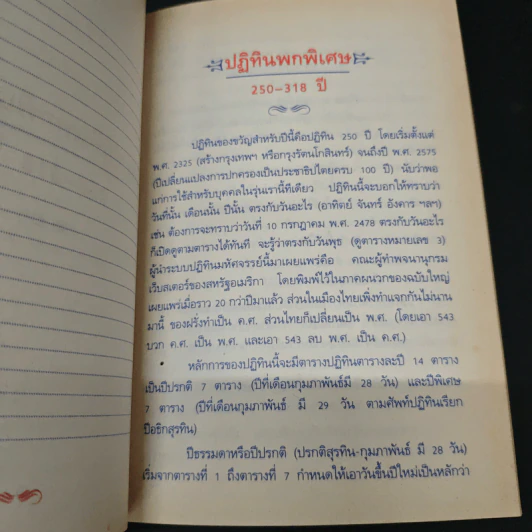 ปฏิทินพกพิเศษ
250-318 ปี
ปฏิทินของขวัญสำหรับปีนี้คือปฏิทิน 250 ปี โดยเริ่มตั้งแต่
พ.ศ. 2325 (สร้างกรุงเทพฯ หรือกรุงรัตนโกสินทร์) จนถึงปี พ.ศ. 2575
(ปีเปลี่ยนแปลงการปกครองเป็นประชาธิปไตยครบ 100 ปี) นับว่าพอ
แก่การใช้สำหรับบุคคลในรุ่นเรานี้ทีเดียว ปฏิทินนี้จะบอกให้ทราบว่า
วันที่นั้น เดือนนั้น ปีนั้น ตรงกับวันอะไร (อาทิตย์ จันทร์ อังคาร ฯลฯ)
เช่น ต้องการจะทราบว่าวันที่ 10 กรกฎาคม พ.ศ. 2478 ตรงกับวันอะไร
ก็เปิดดูตามตารางได้ทันที จะรู้ว่าตรงกับวันพุธ (ดูตารางหมายเลข 3)
ผู้นำระบบปฏิทินมหัศจรรย์นี้มาเผยแพร่คือ คณะผู้ทำพจนานุกรม
เว็บสเตอร์ของสหรัฐอเมริกา โดยพิมพ์ไว้ในภาคผนวกของฉบับใหญ่
เผยแพร่เมื่อราว 20 กว่าปีมาแล้ว ส่วนในเมืองไทยเพิ่งทำแจกกันไม่นาน
มานี้ ของฝรั่งทำเป็น ค.ศ. ส่วนไทยก็เปลี่ยนเป็น พ.ศ. (โดยเอา 543
บวก ค.ศ. เป็น พ.ศ. และเอา 543 ลบ พ.ศ. เป็น ค.ศ.)
หลักการของปฏิทินนี้จะมีตารางปฏิทินตารางละปี 14 ตาราง
เป็นปีปรกติ 7 ตาราง (ปีที่เดือนกุมภาพันธ์มี 28 วัน) และปีพิเศษ
7 ตาราง (ปีที่เดือนกุมภาพันธ์ มี 29 วัน ตามศัพท์ปฏิทินเรียก
ปีอธิกสุรทิน)
ปีธรรมดาหรือปีปรกติ (ปรกติสุรทิน-กุมภาพันธ์ มี 28 วัน)
เริ่มจากตารางที่ 1 ถึงตารางที่ 7 กำหนดให้เอาวันขึ้นปีใหม่เป็นหลักว่า